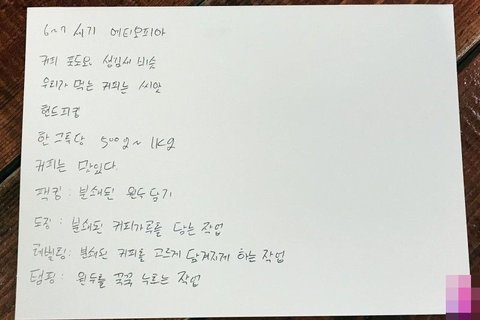 6~7 세기 에티오피아
커피 포도요, 생김새 비슷
우리가 먹는 커피는 씨앗
핸드피킹
한 그루당 500g ~ 1kg
커피는 맛있다.
팩킹 : 분쇄된 원두담기
도징 : 분쇄된 커피가루를 담는 작업
레벨링 : 분쇄된 커피를 고르게 담겨지게 하는 작업
탬핑 : 원두를 꾹꾹 누르는 작업